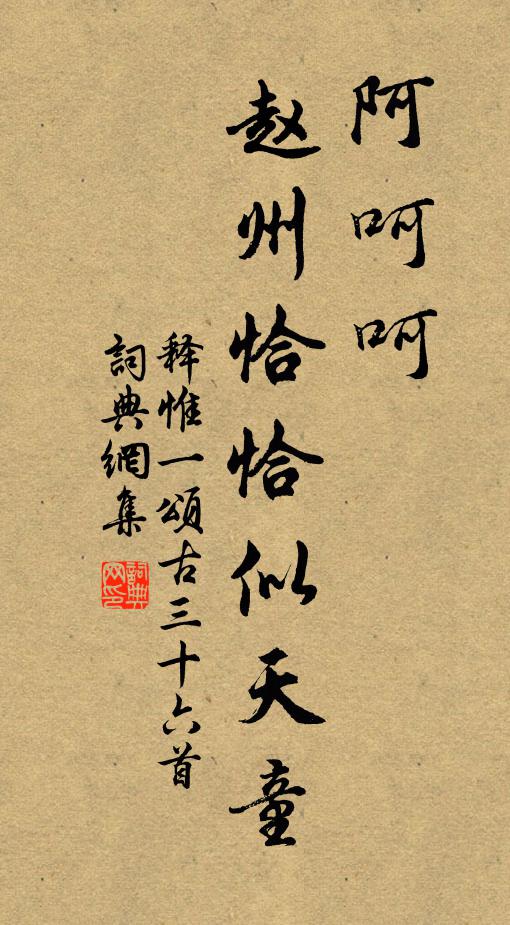 阿呵呵
赵州恰恰似天童
释惟一頌古三十六首
詞典網集
詞典网印